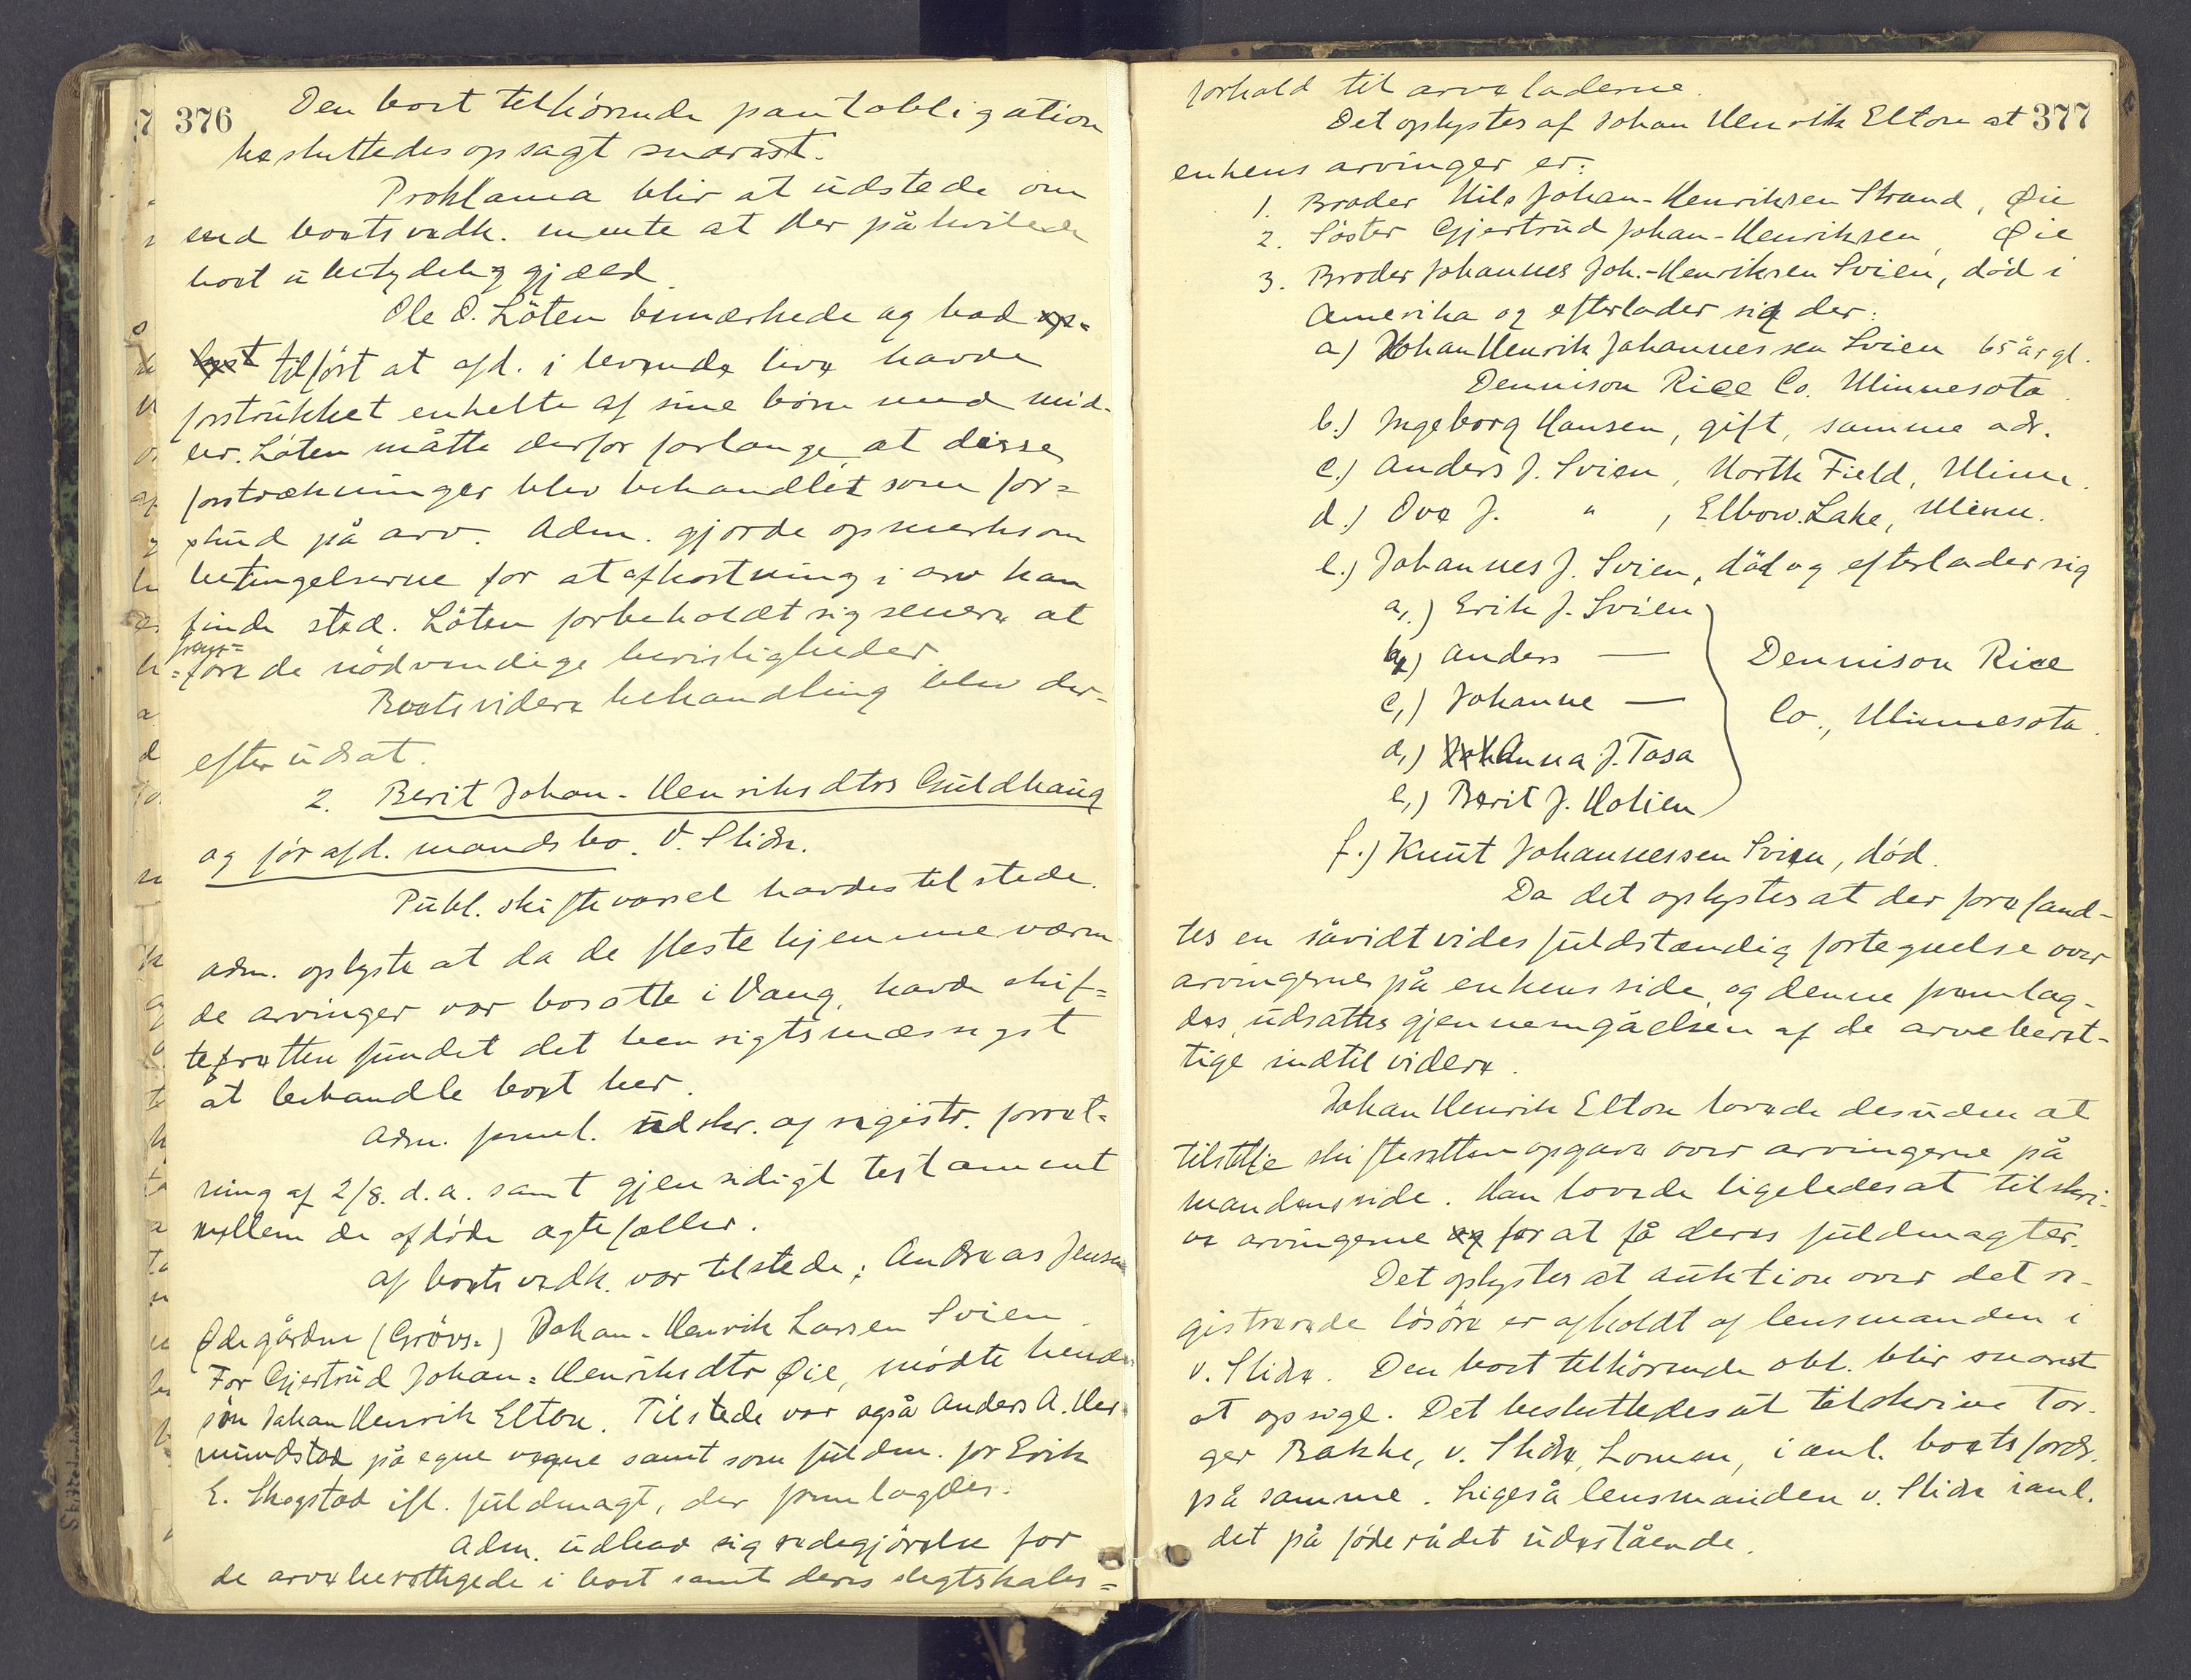 376
Den boet tilhörende pantobligation
besluttedes opsagt snarest.
Proklama blir at udstede om
end boets vedk. mente at der påhvilede
boet ubetydelig gjæld.
Ole O. Löten bemærkede og bad op-
lyst tilfört at afd. i levende live havde
forstrukket enkelte af sine börn med mid-
ler. Löten måtte derfor forlange at disse
forstrækninger blev behandlet som for=
skud på arv. Adm. gjorde opmerksom
betingelserne for at afkortning i arv kan
finde sted. Löten forbeholdt sig senere at
frem=
=före de nödvendige bevisligheder.
Boets videre behandling blev der-
efter udsat.
2. Berit Johan-Henriksdtrs Guldhaug
og för afd. mands bo. V. Slidre.
Publ. skiftevarsel havdes tilstede.
Adm. oplyste at da de fleste hjemmeværen
de arvinger var bosatte i Vang, havde skif=
teretten fundet det hensigtsmæssigst
at behandle boet her.
Adm. freml. udskr. af registr. forret-
ning af 2/8. d.a. samt gjensidigt testament
mellem de afdöde ægtefæller.
Af boets vedk. var tilstede: Andreas Jensen
Ødegården (Grövs.) Johan-Henrik Larsen Svien.
For Gjertrud Johan=Henriksdtr Øie, mödte hendes
sön Johan Henrik Elton. Tilstede var også Anders A. Her
mundstad på egne vegne samt som fuldm. for Erik
E. Skogstad ifl. fuldmagt, der fremlagdes.
Adm. udbad sig redegjörelse for
de arveberettigede i boet samt deres slegtskabs=
377
forhold til arveladerne.
Det oplystes af Johan Henrik Elton at
enkens arvinger er:
1. Broder Nils Johan-Henriksen Strand, Øie
2. Söster Gjertrud Johan-Henriksen, Øie
3. Broder Johannes Joh.-Henriksen Svien, död i
Amerika og efterlader sig der:
a) Johan Henrik Johannessen Svien 65 år gl.
Dennison Rice Co. Minnesota.
b.) Ingeborg Hansen, gift, samme adr.
c.) Anders J. Svien, North Field, Minn.
d.) Ove J. " , Elbow. Lake, Minn.
e.) Johannes J. Svien, död og efterlader sig
a,) Erik J. Svien
b,) Anders —
c,) Johanne —
Dennison Rice
Co., Minnesota.
d,) Anna J. Tasa
e,) Berit J. Holien
f.) Knut Johannessen Svien, död.
Da det oplystes at der forefand-
tes en såvidt vides fuldstændig fortegnelse over
arvingerne på enkens side, og denne fremlag-
des, udsattes gjennemgåelsen af de arveberet-
tige indtil videre.
Johan Henrik Elton lovede desuden at
tilstille skifteretten opgave over arvingerne på
mandens side. Han lovede ligeledes at tilskri-
ve arvingerne og for at få deres fuldmagter.
Det oplystes at auktion over det re-
gistrerede lösöre er afholdt af lensmanden i
v. Slidre. Den boet tilhörende obl. blir snarest
at opsige. Det besluttedes at tilskrive Tor-
ger Bakke, v. Slidre, Lomen, i anl. boets fordr.
på samme. Ligeså lensmanden v. Slidre i anl.
det på föderådet udestående.